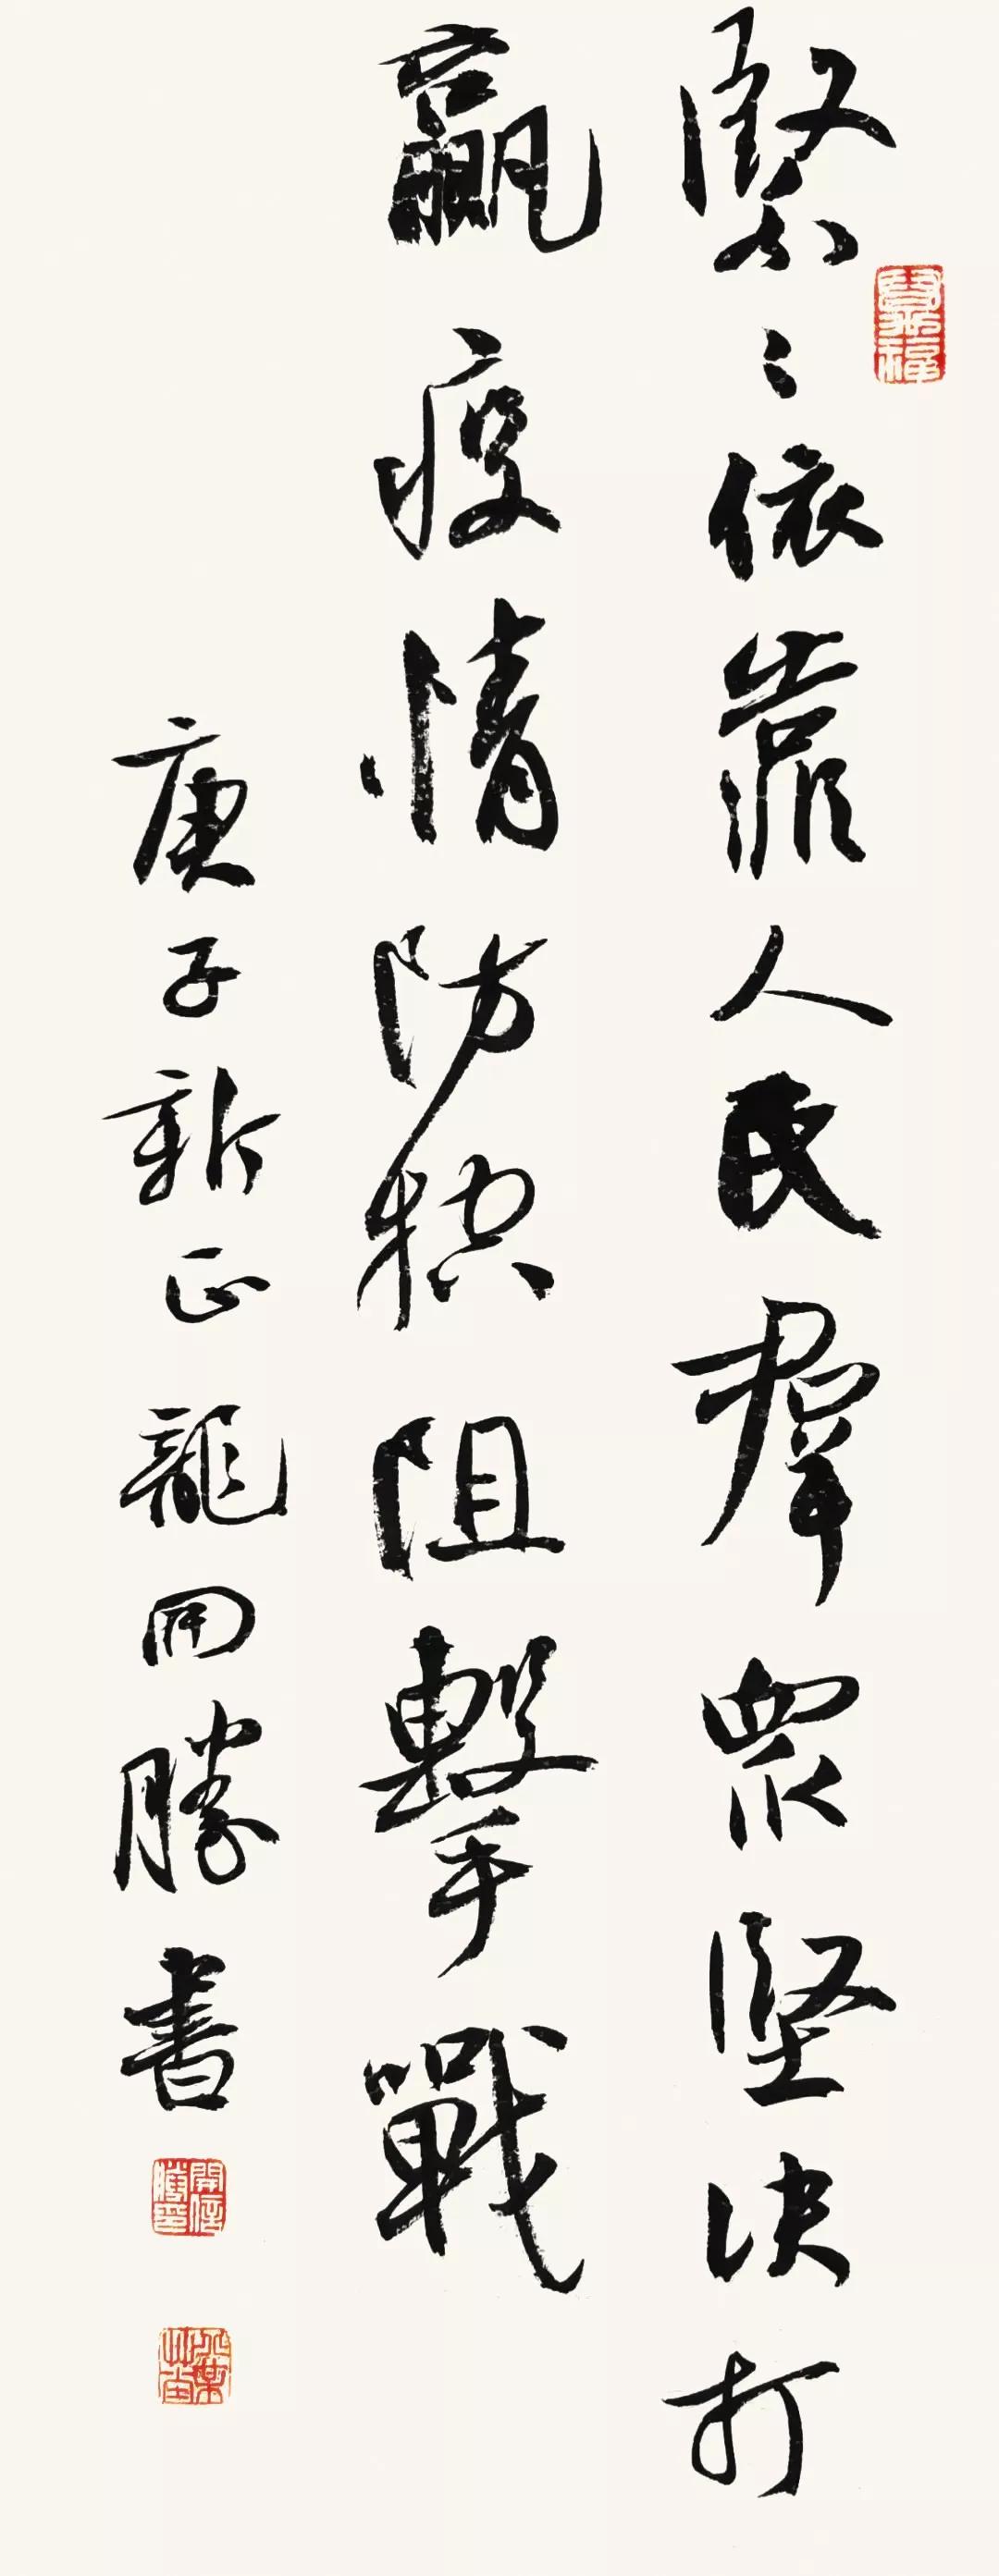 緊〻依靠人民羣眾堅決打
贏疫情防控阻擊戰
庚子新正龍開勝書